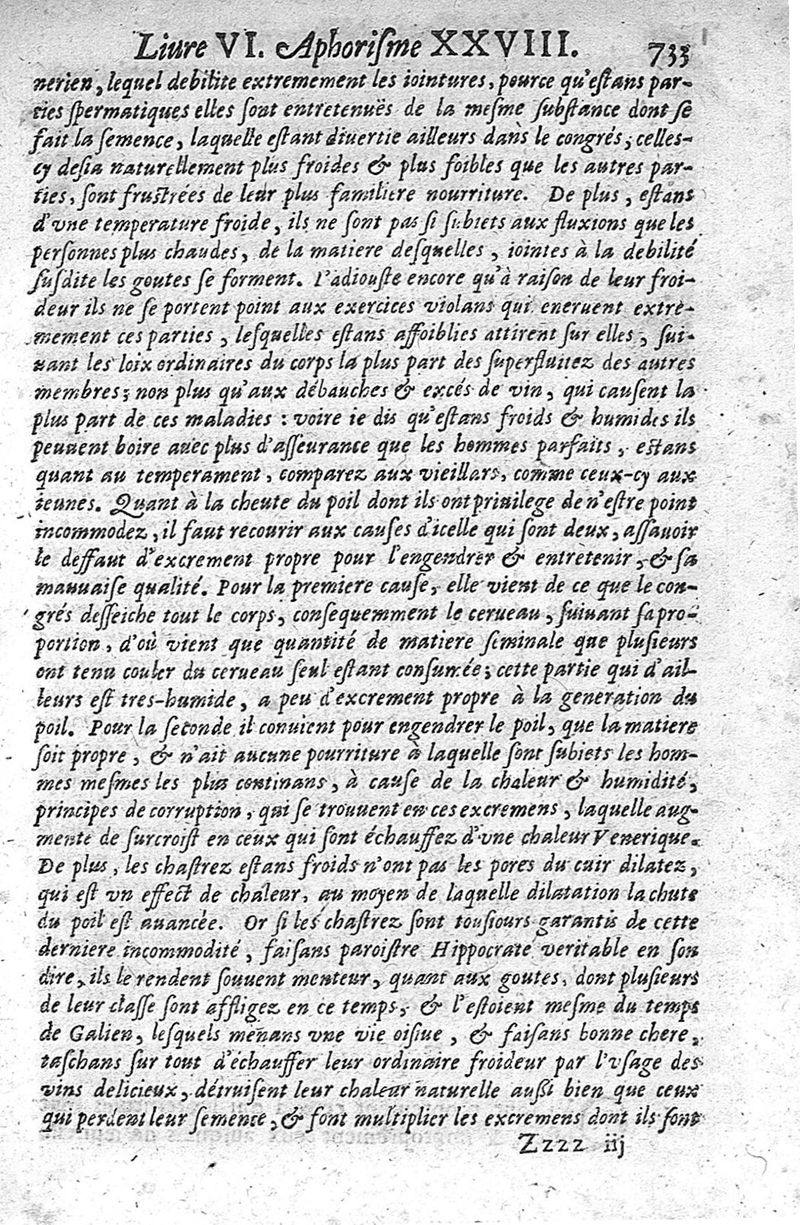 Liure VI. Aphoriſme XXVIII. 733
nerien, lequel debilite extremement les iointures, pource qu'eſtans par-
ties ſpermatiques elles ſont entretenuës de la meſme ſubſtance dont ſe
fait la ſemence, laquelle eſtant diuertie ailleurs dans le congrés; celles-
cy deſia naturellement plus froides & plus foibles que les autres par-
ties, ſont fruſtrées de leur plus familiere nourriture. De plus, eſtans
d'vne temperature froide, ils ne ſont pas ſi ſubiets aux fluxions que les
perſonnes plus chaudes, de la matiere deſquelles, iointes à la debilité
ſuſdite les goutes ſe forment. I'adiouſte encore qu'à raiſon de leur froi-
deur ils ne ſe portent point aux exercices violans qui eneruent extre-
mement ces parties, leſquelles eſtans affoiblies attirent ſur elles, ſui-
uant les loix ordinaires du corps la plus part des ſuperfluitez des autres
membres; non plus qu'aux débauches & excés de vin, qui cauſent la
plus part de ces maladies : voire ie dis qu'eſtans froids & humides ils
peuuent boire auec plus d'aſſeurance que les hommes parfaits, eſtans
quant au temperament, comparez aux vieillars, comme ceux-cy aux
ieunes. Quant à la cheute du poil dont ils ont priuilege de n'eſtre point
incommodez, il faut recourir aux cauſes d'icelle qui ſont deux, aſſauoir
le deffaut d'excrement propre pour l'engendrer & entretenir, & ſa
mauuaiſe qualité. Pour la premiere cauſe, elle vient de ce que le con-
grés deſſeiche tout le corps, conſequemment le cerueau, ſuiuant ſa pro-
portion, d'où vient que quantité de matiere ſeminale que pluſieurs
ont tenu couler du cerueau ſeul eſtant conſumée; cette partie qui d'ail-
leurs eſt tres-humide, a peu d'excrement propre à la generation du
poil. Pour la ſeconde il conuient pour engendrer le poil, que la matiere
ſoit propre, & n'ait aucune pourriture à laquelle ſont ſubiets les hom-
mes meſmes les plus continans, à cauſe de la chaleur & humidité,
principes de corruption, qui ſe trouuent en ces excremens, laquelle aug-
mente de ſurcroiſt en ceux qui ſont échauffez d'vne chaleur Venerique.
De plus, les chaſtrez eſtans froids n'ont pas les pores du cuir dilatez,
qui eſt vn effect de chaleur, au moyen de laquelle dilatation la chute
du poil eſt auancée. Or ſi les chaſtrez ſont touſiours garantis de cette
derniere incommodité, faiſans paroiſtre Hippocrate veritable en ſon
dire, ils le rendent ſouuent menteur, quant aux goutes, dont pluſieurs
de leur claſſe ſont affligez en ce temps, & l'eſtoient meſme du temps
de Galien, leſquels menans vne vie oiſiue, & faiſans bonne chere,
taſchans ſur tout d'échauffer leur ordinaire froideur par l'vſage des
vins delicieux, détruiſent leur chaleur naturelle auſſi bien que ceux
qui perdent leur ſemence, & font multiplier les excremens dont ils ſont
Zzzz iij